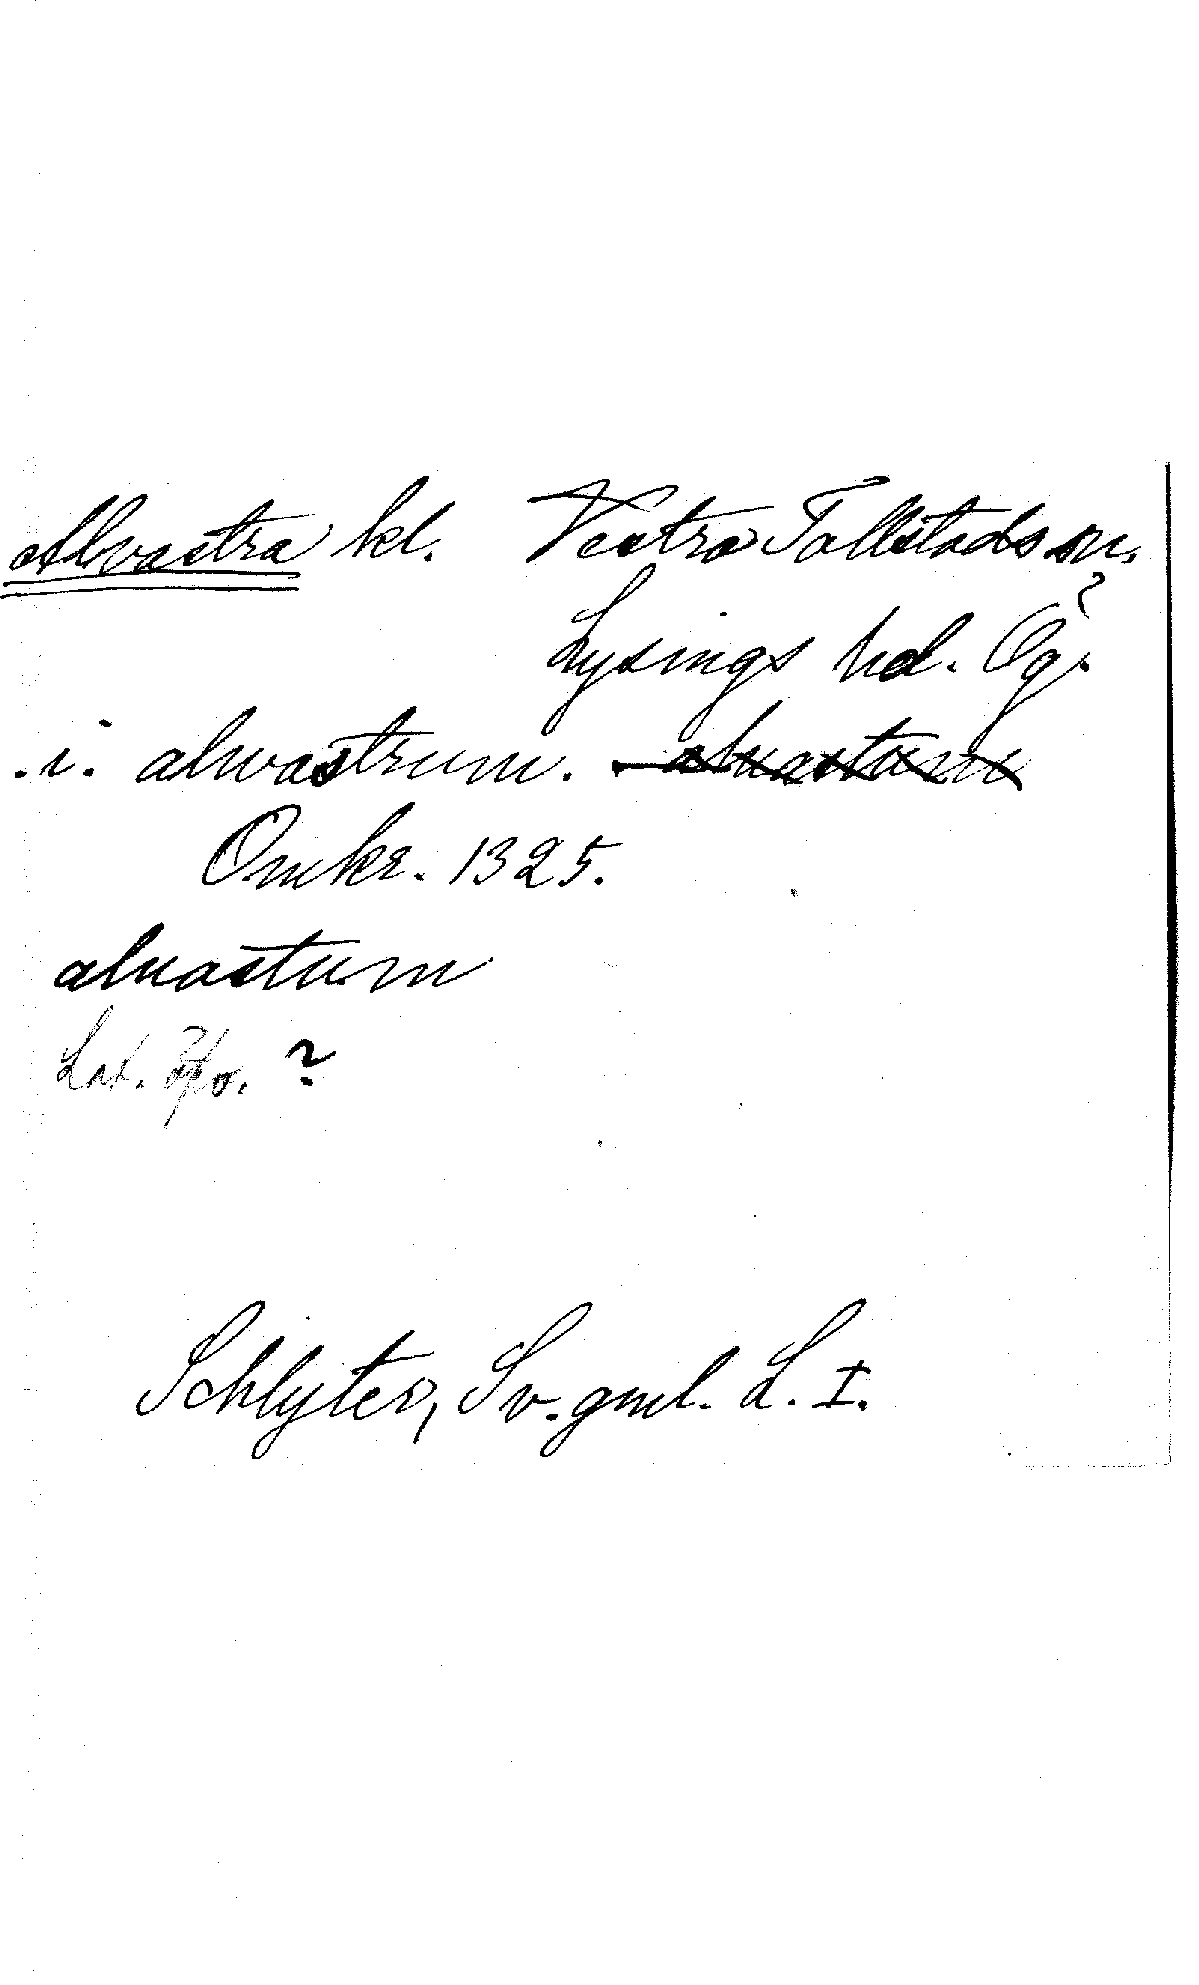 Alvastra kl. Vestra Tollstads sn.
Lysings hd. Ög.
.i. alwastrum. aluastum
Omkr. 1325.
aluastum
Lat. ?
Schlyter, Sv. gml. L. I.